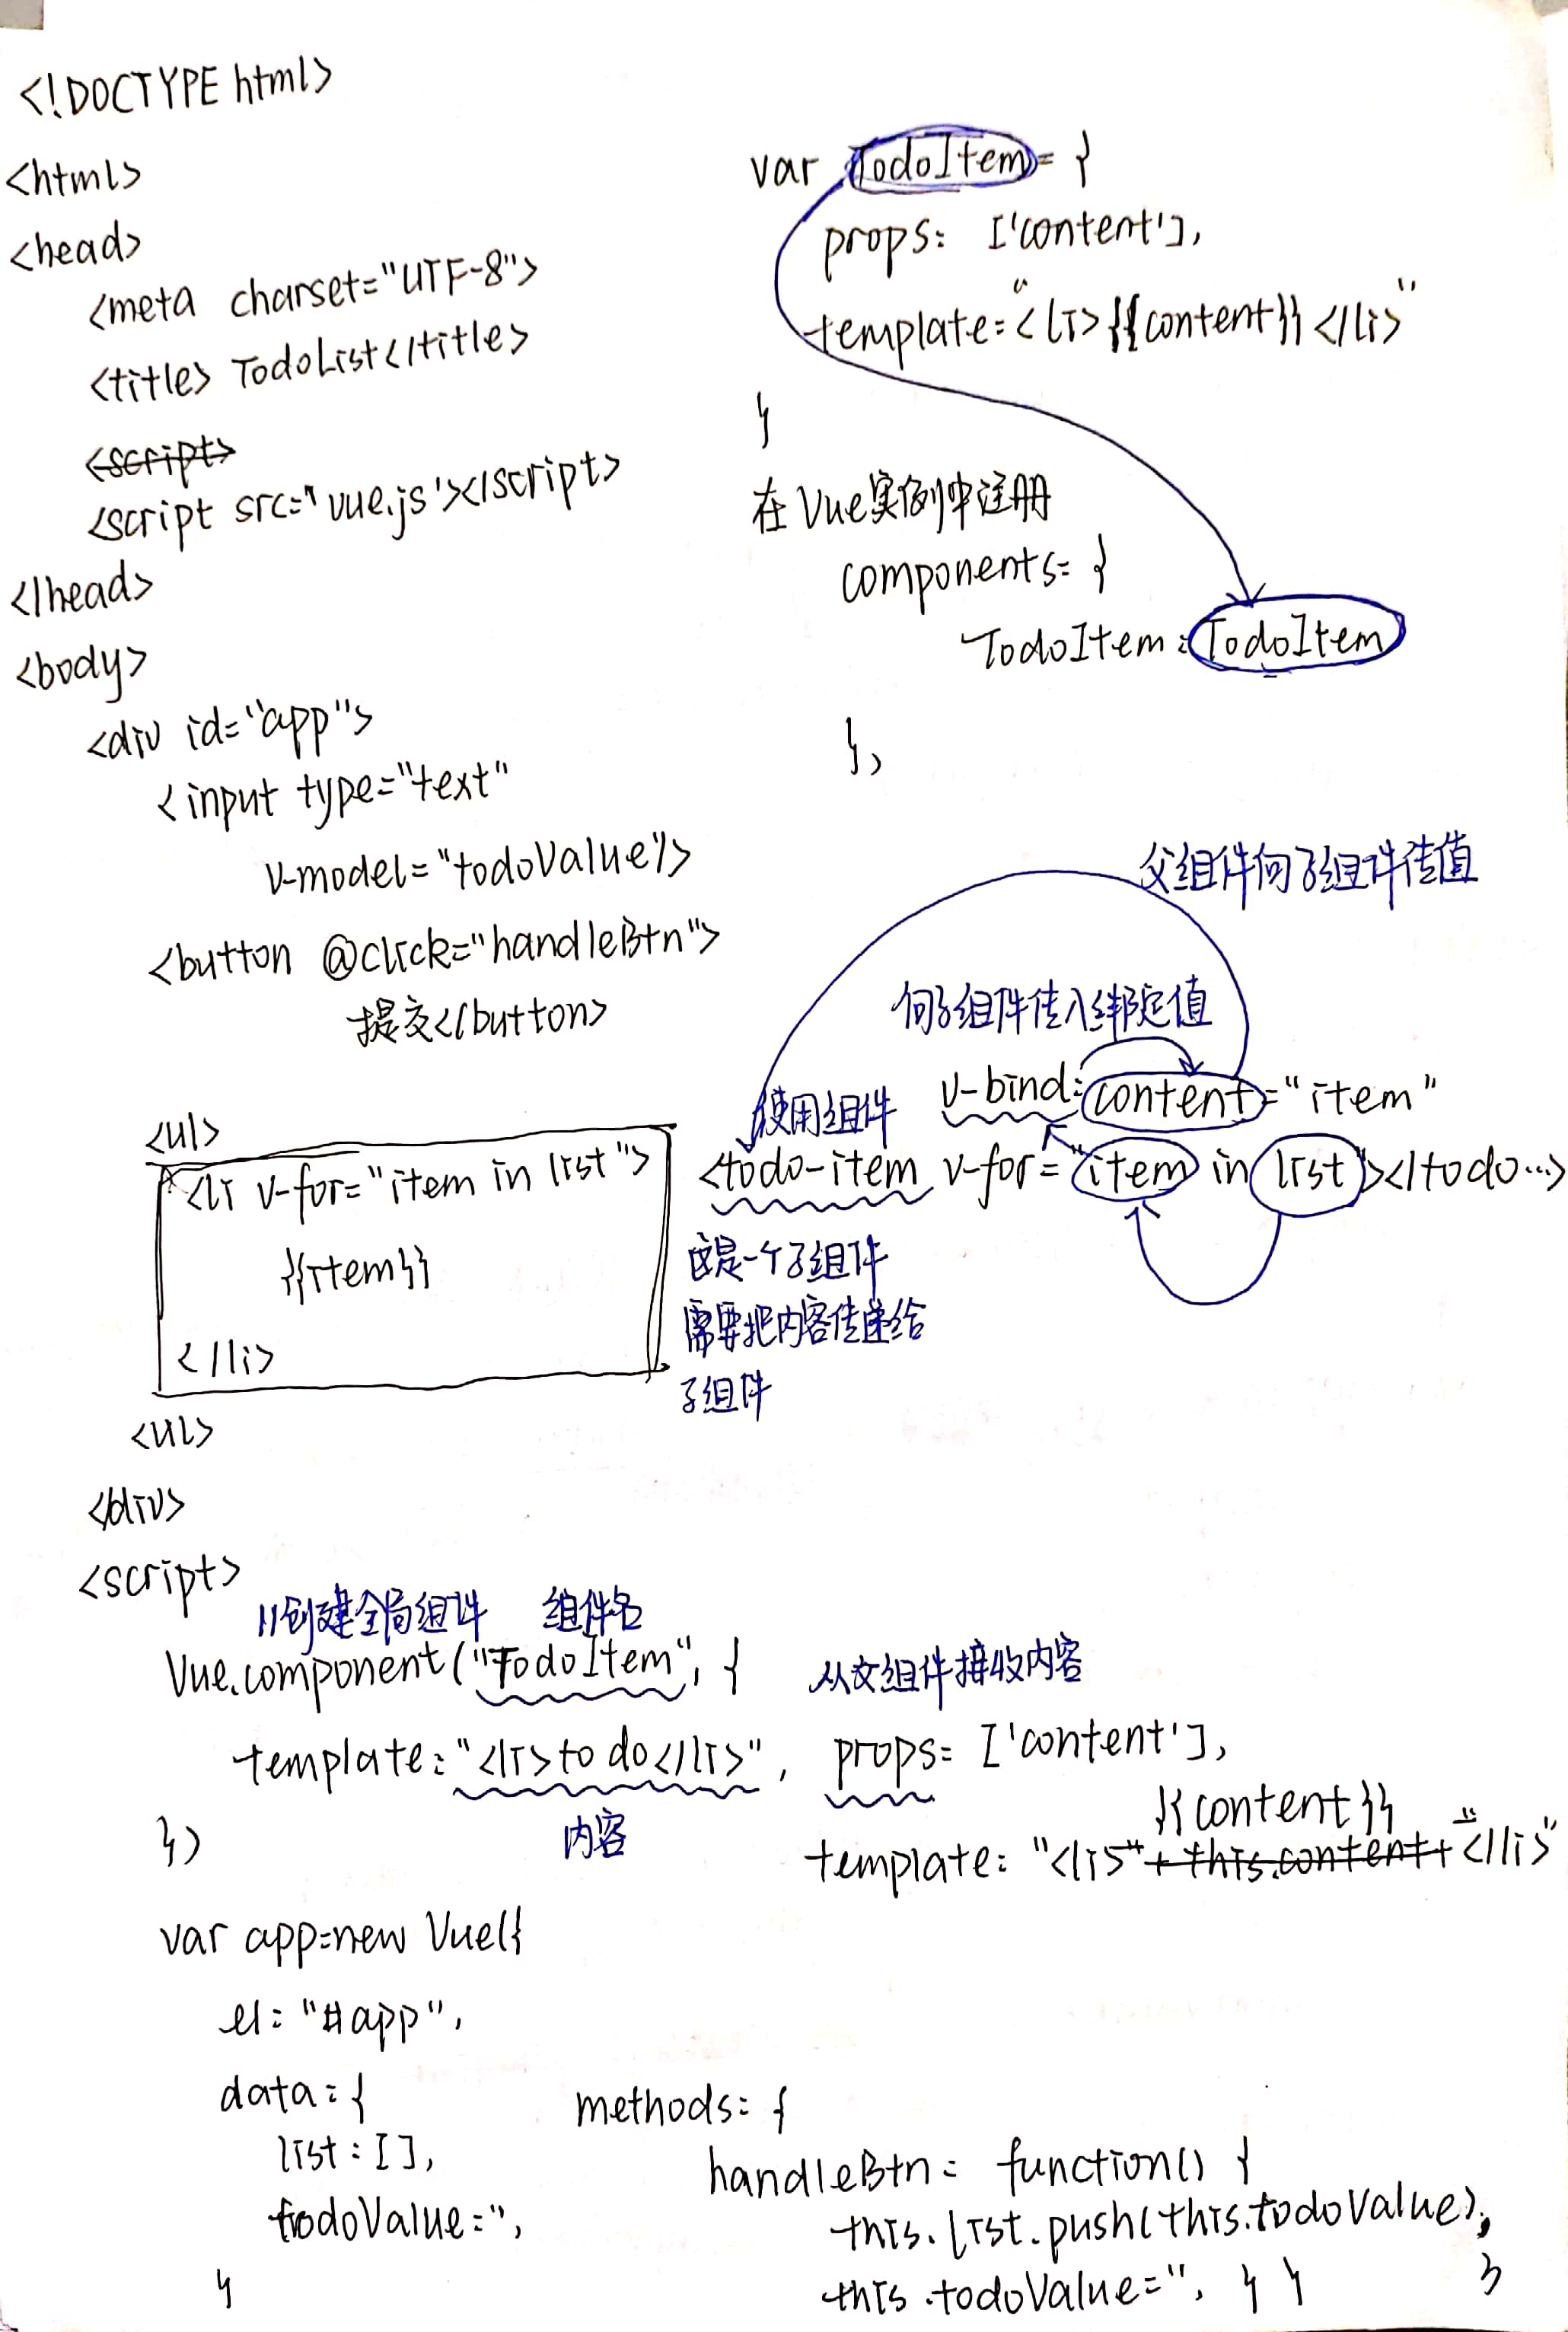 <!DOCTYPE html>
<html>
<head>
<meta charset="UTF-8">
<title> TodoList</title>
<script>
<script src='vue.js'></script>
</head>
<body>
<div id="app">
<input type="text"
v-model="todoValue"/>
<button @click="handleBtn">
提交</button>
<ul>
<li v-for="item in list">
{{item}}
</li>
<ul>
</div>
<script>
//创建全局组件 组件名
Vue.component("TodoItem", {
template: "<li>to do</li>",
})
内容
var app=new Vue({
el: "#app",
data: {
list: [],
todoValue: '',
}
var TodoItem = {
props: ['content'],
template: "<li>{{content}}</li>"
}
在Vue实例中注册
components: {
TodoItem: TodoItem
},
父组件向子组件传值
向子组件传入绑定值
使用组件
v-bind:content="item"
<todo-item v-for="item in list"></todo...>
这是一个子组件
需要把内容传递给
子组件
从父组件接收内容
props: ['content'],
{{content}}
template: "<li>"+this.content+"</li>"
methods: {
handleBtn: function() {
this.list.push(this.todoValue);
this.todoValue='', } }
}